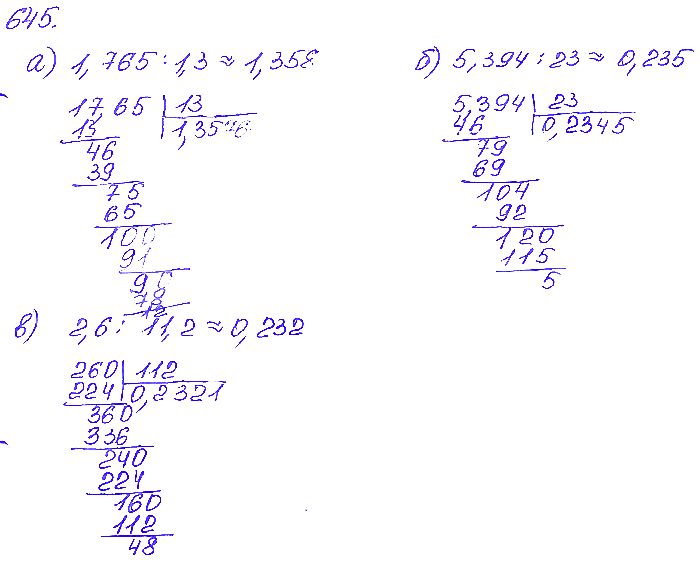 645.
а) 1,765 : 1,3 ≈ 1,358
17,65 | 13
13 | 1,3576
46
39
75
65
100
91
90
78
12
б) 5,394 : 23 ≈ 0,235
5,394 | 23
46 | 0,2345
79
69
104
92
120
115
5
в) 2,6 : 11,2 ≈ 0,232
260 | 112
224 | 0,2321
360
336
240
224
160
112
48